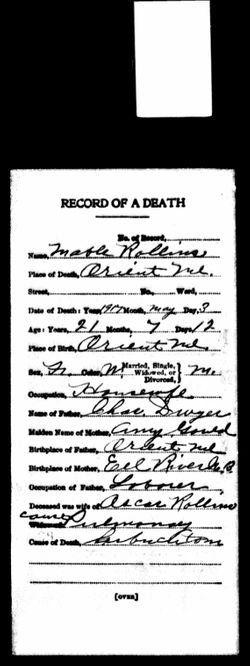 RECORD OF A DEATH
No. of Record,
Name, Mable Rollins
Place of Death, Orient Me.
Street, No., Ward,
Date of Death: Year, 1917 Month, May Day, 3
Age: Years, 21 Months, 7 Days, 12
Place of Birth, Orient Me
Sex, Color, W. Married, Single, Widowed, or Divorced, M.
Occupation, Housewife
Name of Father, Chas. Dwyer
Maiden Name of Mother, Amy Gould
Birthplace of Father, Orient Me
Birthplace of Mother, Eel River N.B.
Occupation of Father, Laborer
Deceased was wife of Oscar Rollins
Pulmonary
Cause of Death,
[OVER]